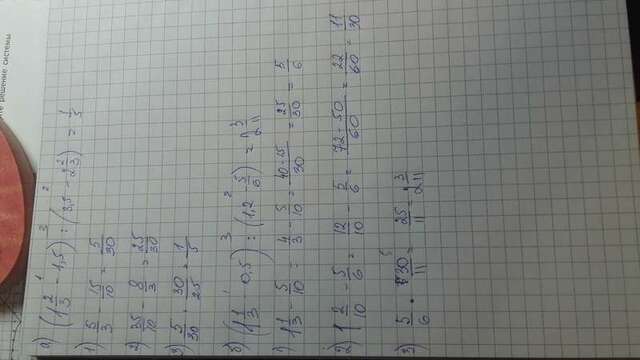 те решение системы
а) (1 2/3 - 1,5) : (3,5 - 2 2/3) = 1/5
1) 5/3 - 15/10 = 5/30
2) 35/10 - 8/3 = 25/30
3) 5/30 · 30/25 = 1/5
б) (1 1/3 - 0,5) : (1,2 - 5/6) = 2 3/11
1) 1 1/3 - 5/10 = 4/3 - 5/10 = 40-15/30 = 25/30 = 5/6
2) 1 2/10 - 5/6 = 12/10 - 5/6 = 72-50/60 = 22/60 = 11/30
3) 5/6 · 30/11 = 25/11 = 2 3/11